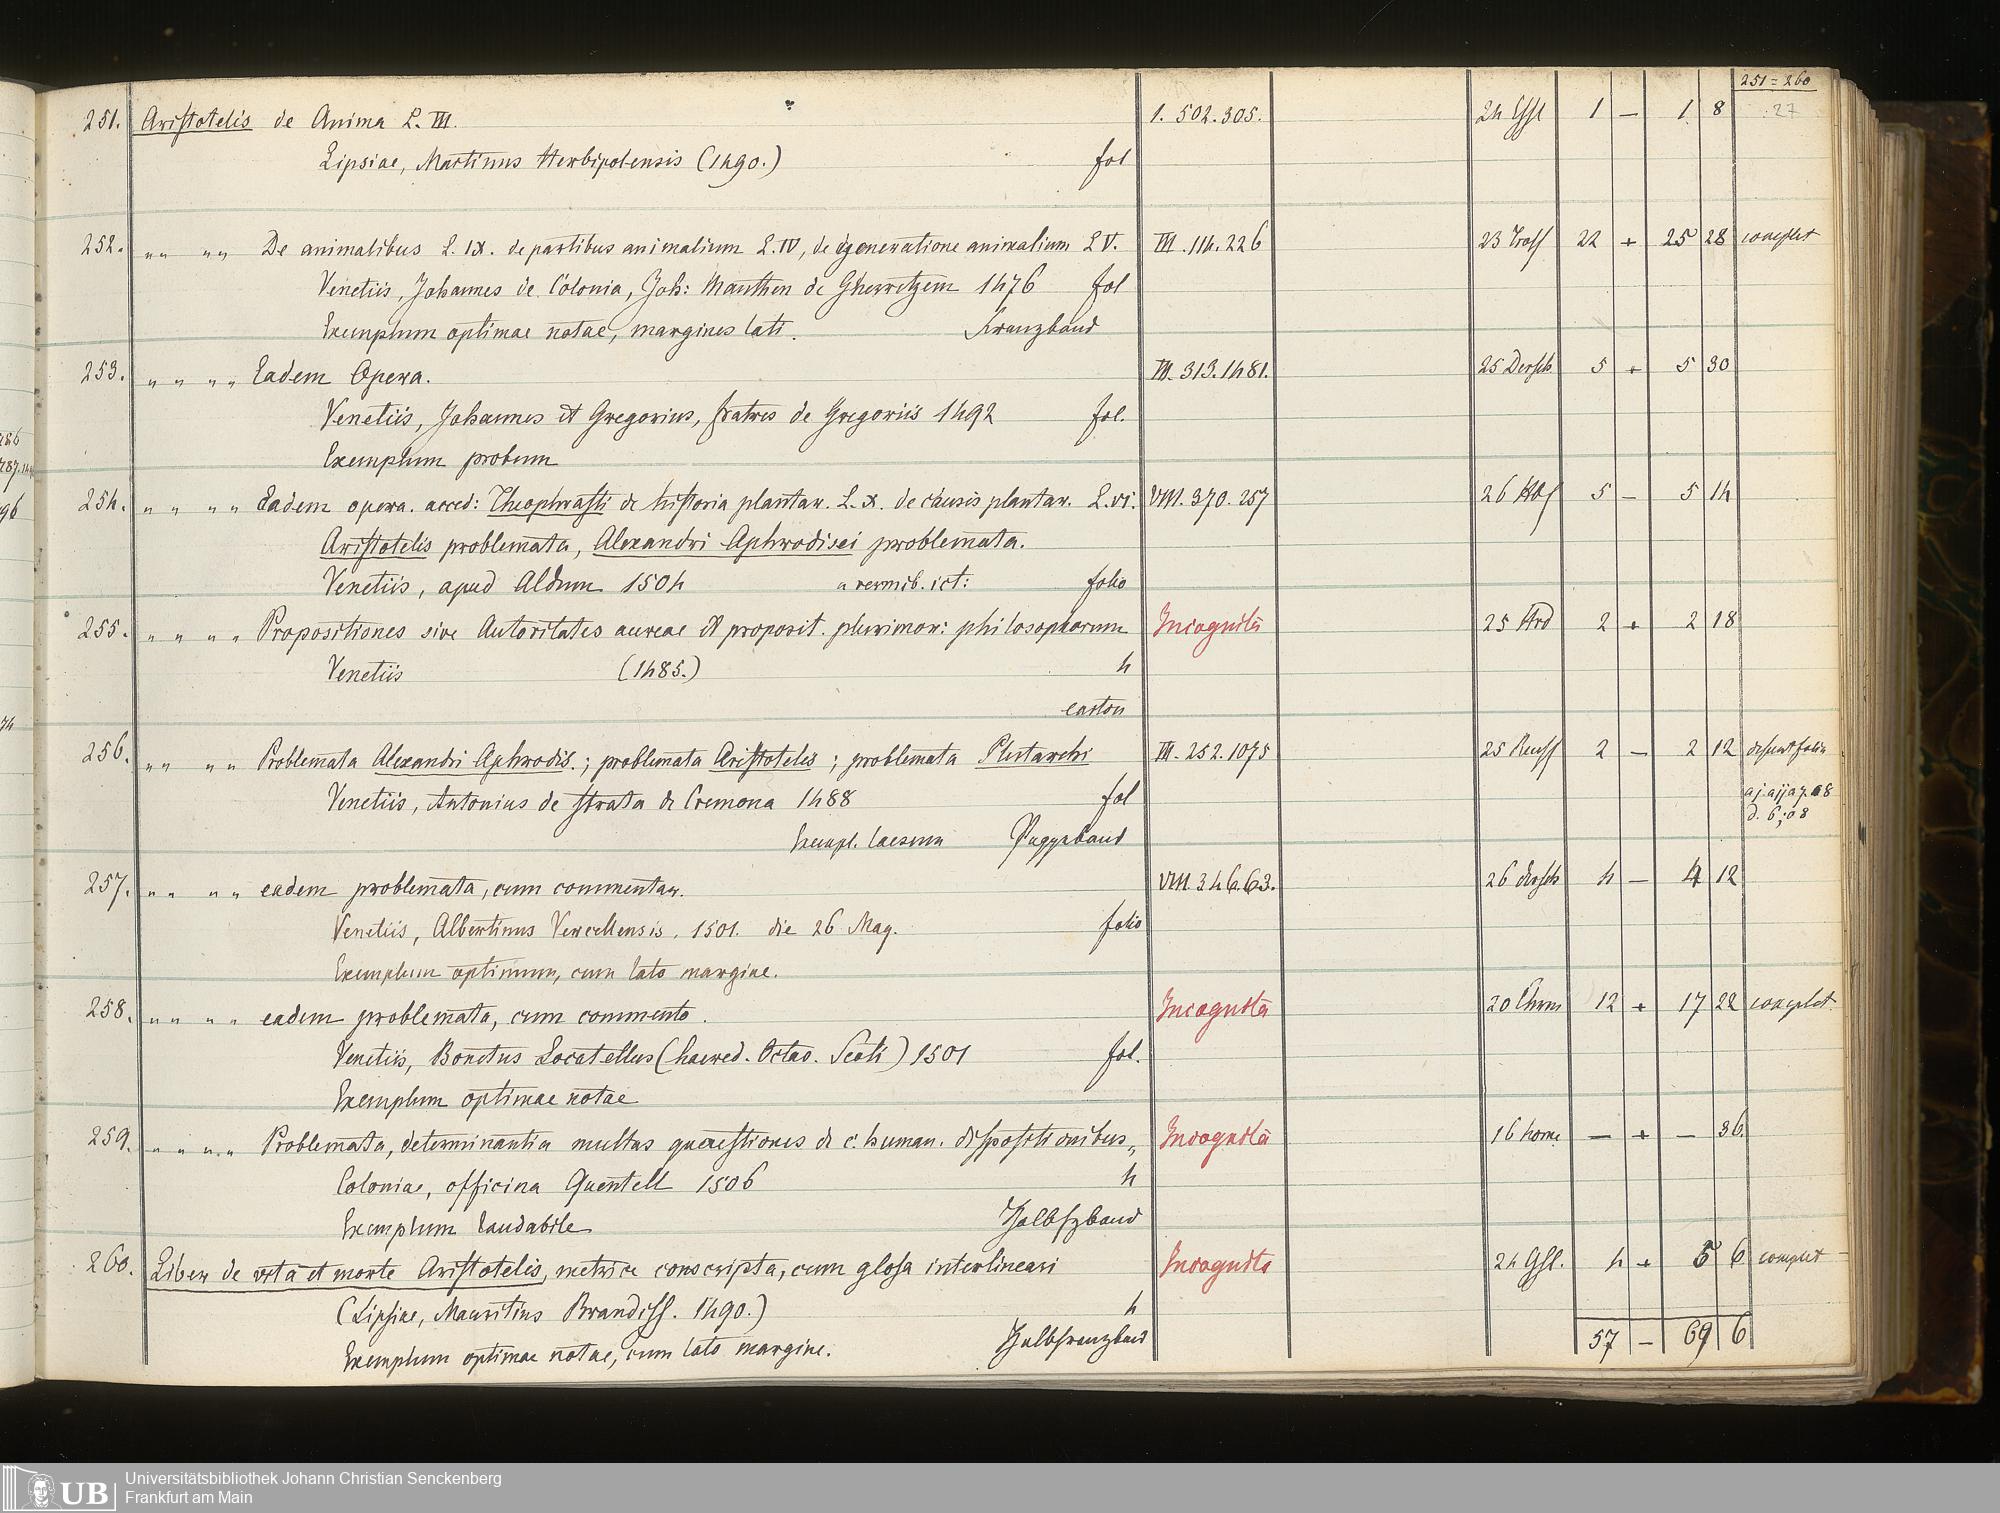 251 = 260
251. Aristotelis de Anima L. III. 1. 502. 305. 1 — 1 8 27
Lipsiae, Martinus Herbipolensis (1490.) fol
252. „ „ „ „ De animalibus L. IX. de partibus animalium L. IV, de generatione animalium L V. III. 114. 226 22 + 25 28 complet
Venetiis, Johannes de Colonia, Joh: Manthen de Gherretzem 1476 fol
Exemplum optimae notae, margines lati. Franzband
253. „ „ „ „ Eadem Opera. III. 313. 1481. 25 Dersch 5 + 5 30
Venetiis, Johannes et Gregorius, fratres de Gregoriis 1492 fol.
Exemplum probum
254. „ „ „ „ Eadem opera. acced: Theophrasti de historia plantar. L. X. de causis plantar. L. VI. VIII. 370. 257 26 5 — 5 14
Aristotelis problemata, Alexandri Aphrodisei problemata.
Venetiis, apud Aldum 1504 a vermib. ict: folio
255. „ „ „ „ Propositiones sive Autoritates aureae et proposit. plurimor: philosophorum Incognita 25 2 + 2 18
Venetiis (1485.) 4
carton
256. „ „ „ „ Problemata Alexandri Aphrodis.; problemata Aristotelis; problemata Plutarchi III. 252. 1075 25 Reuss 2 — 2 12 desunt folia
Venetiis, Antonius de Strata de Cremona 1488 fol
Exempl. laesum Pappband
257. „ „ „ „ eadem problemata, cum commentar. VIII. 346. 63. 26 Dersch 4 — 4 12
Venetiis, Albertinus Vercellensis. 1501. die 26 Mag. folio
Exemplum optimum, cum lato margine.
258. „ „ „ „ eadem problemata, cum commento. Incognita 20 12 + 17 22 complet
Venetiis, Bonetus Locatellus (haered. Octav. Scoti) 1501 fol.
Exemplum optimae notae
259. „ „ „ „ Problemata, determinantia multas quaestiones de c. human. dispositionibus„ Incognita 16 — + — 36.
Coloniae, officina Quentell 1506 4
Exemplum laudabile Halbfzband
260. Liber de vita et morte Aristotelis, metrice conscripta, cum glosa interlineari Incognita 24 4 + 5 6 complet
(Lipsiae, Mauritius Brandiss. 1490.) 4
Exemplum optimae notae, cum lato margine. Halbfranzband
57 — 69 6
UB Universitätsbibliothek Johann Christian Senckenberg
Frankfurt am Main